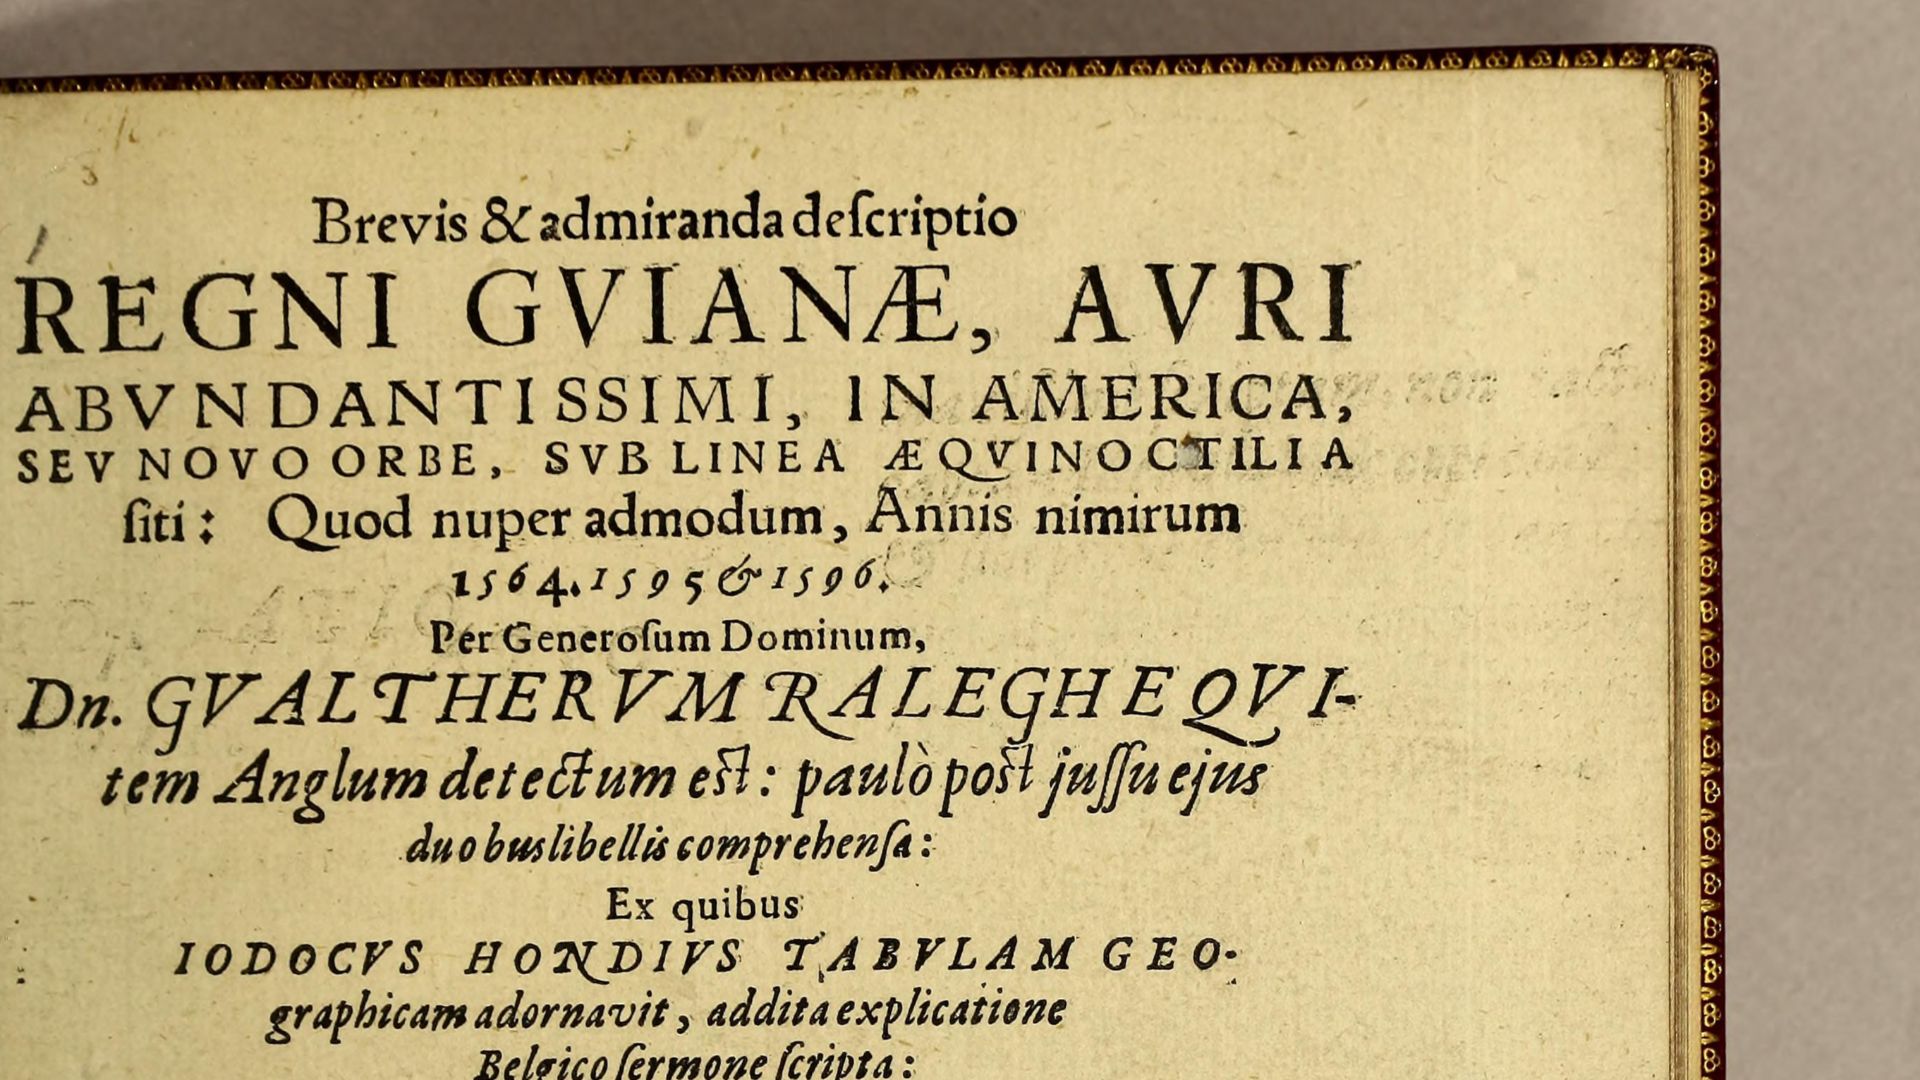 Brevis & admiranda deſcriptio
REGNI GVIANÆ, AVRI
ABVNDANTISSIMI, IN AMERICA,
SEV NOVO ORBE, SVB LINEA ÆQVINOCTILIA
ſiti: Quod nuper admodum, Annis nimirum
1564.1595 & 1596.
Per Generoſum Dominum,
Dn. GVALTHERVM RALEGH EQVI-
tem Anglum detectum eſt: paulò poſt juſſu ejus
duobus libellis comprehenſa:
Ex quibus
IODOCVS HONDIVS TABVLAM GEO-
graphicam adornavit, addita explicatione
Belgico ſermone ſcripta: